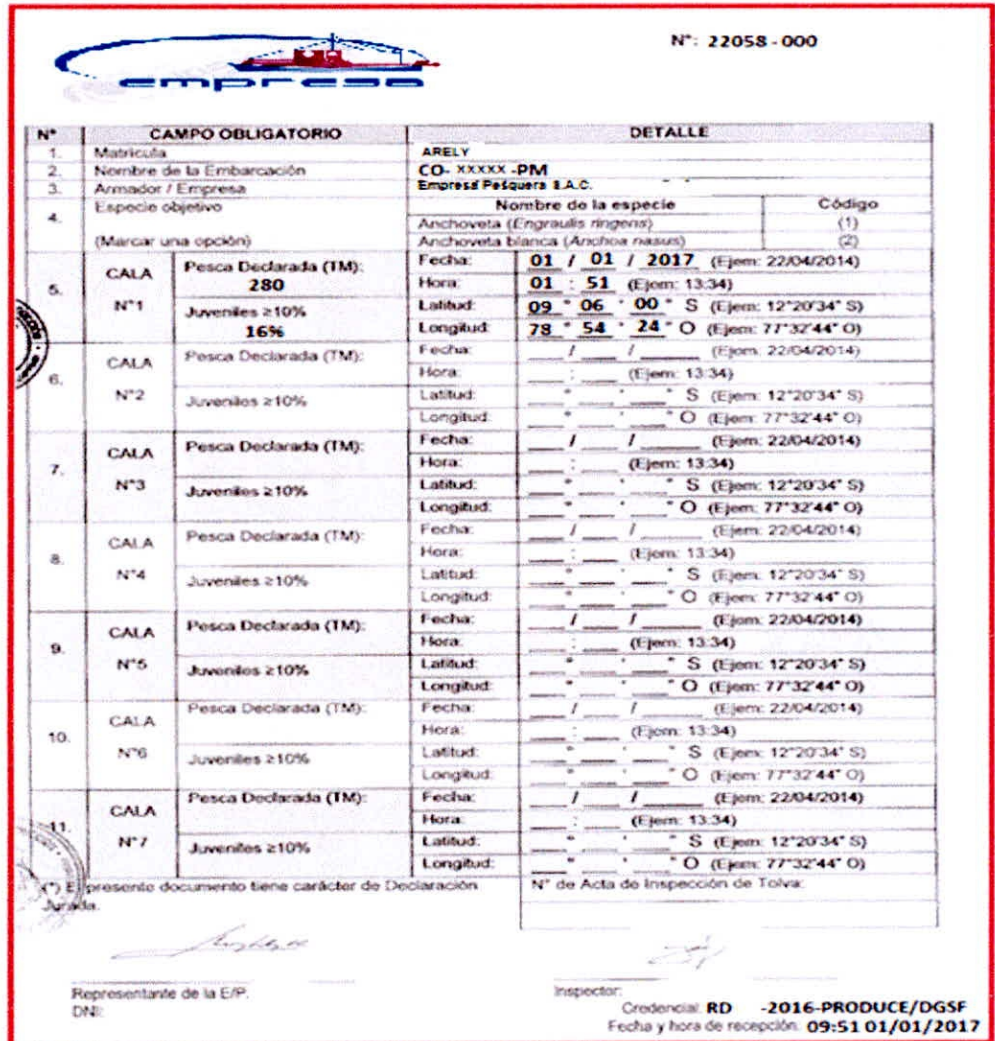 N°: 22058 - 000
empresa
N° CAMPO OBLIGATORIO DETALLE
1. Matrícula ARELY
2. Nombre de la Embarcación CO- XXXXX -PM
3. Armador / Empresa Empresa Pesquera S.A.C.
4. Especie objetivo Nombre de la especie Código
Anchoveta (Engraulis ringens) (1)
(Marcar una opción) Anchoveta blanca (Anchoa nasus) (2)
5. CALA N°1 Pesca Declarada (TM): 280 Fecha: 01 / 01 / 2017 (Ejem: 22/04/2014)
Hora: 01 : 51 (Ejem: 13:34)
Juveniles ≥10% 16% Latitud: 09 ° 06 ' 00 " S (Ejem: 12°20'34" S)
Longitud: 78 ° 54 ' 24 " O (Ejem: 77°32'44" O)
6. CALA N°2 Pesca Declarada (TM): Fecha: __ / __ / ____ (Ejem: 22/04/2014)
Hora: __ : __ (Ejem: 13:34)
Juveniles ≥10% Latitud: __ ° __ ' __ " S (Ejem: 12°20'34" S)
Longitud: __ ° __ ' __ " O (Ejem: 77°32'44" O)
7. CALA N°3 Pesca Declarada (TM): Fecha: __ / __ / ____ (Ejem: 22/04/2014)
Hora: __ : __ (Ejem: 13:34)
Juveniles ≥10% Latitud: __ ° __ ' __ " S (Ejem: 12°20'34" S)
Longitud: __ ° __ ' __ " O (Ejem: 77°32'44" O)
8. CALA N°4 Pesca Declarada (TM): Fecha: __ / __ / ____ (Ejem: 22/04/2014)
Hora: __ : __ (Ejem: 13:34)
Juveniles ≥10% Latitud: __ ° __ ' __ " S (Ejem: 12°20'34" S)
Longitud: __ ° __ ' __ " O (Ejem: 77°32'44" O)
9. CALA N°5 Pesca Declarada (TM): Fecha: __ / __ / ____ (Ejem: 22/04/2014)
Hora: __ : __ (Ejem: 13:34)
Juveniles ≥10% Latitud: __ ° __ ' __ " S (Ejem: 12°20'34" S)
Longitud: __ ° __ ' __ " O (Ejem: 77°32'44" O)
10. CALA N°6 Pesca Declarada (TM): Fecha: __ / __ / ____ (Ejem: 22/04/2014)
Hora: __ : __ (Ejem: 13:34)
Juveniles ≥10% Latitud: __ ° __ ' __ " S (Ejem: 12°20'34" S)
Longitud: __ ° __ ' __ " O (Ejem: 77°32'44" O)
11. CALA N°7 Pesca Declarada (TM): Fecha: __ / __ / ____ (Ejem: 22/04/2014)
Hora: __ : __ (Ejem: 13:34)
Juveniles ≥10% Latitud: __ ° __ ' __ " S (Ejem: 12°20'34" S)
Longitud: __ ° __ ' __ " O (Ejem: 77°32'44" O)
(*) El presente documento tiene carácter de Declaración N° de Acta de Inspección de Tolva:
Jurada.
Representante de la E/P. Inspector:
DNI: Credencial: RD -2016-PRODUCE/DGSF
Fecha y hora de recepción: 09:51 01/01/2017